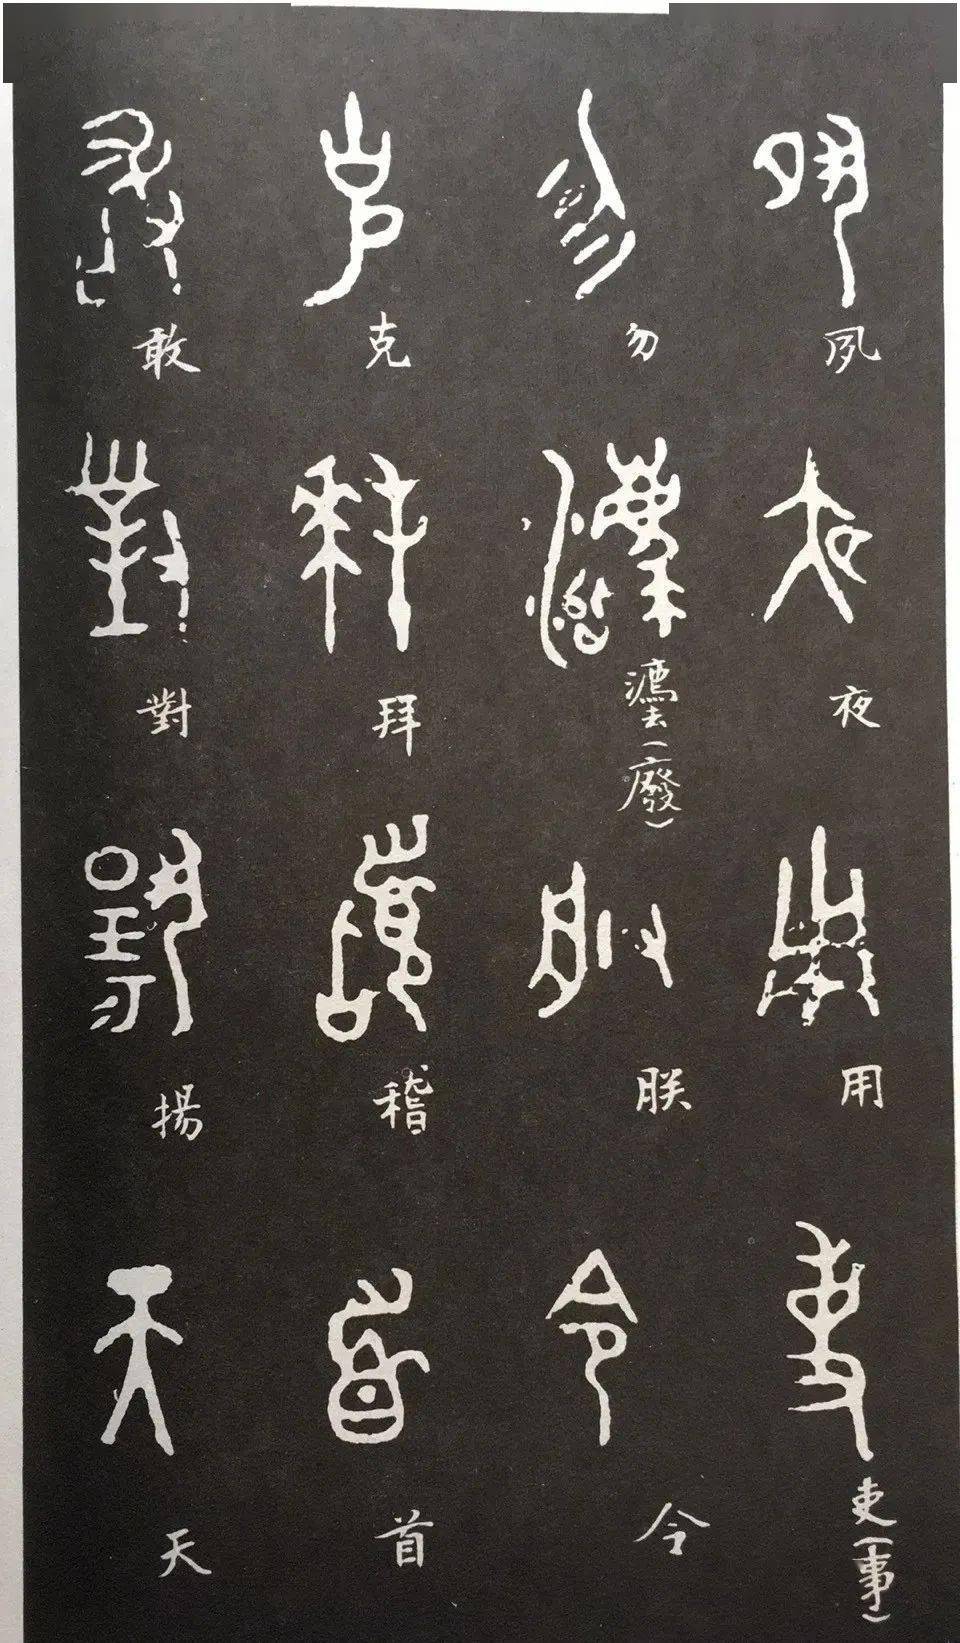 夙夜用吏（事）
勿灋（廢）朕令
克拜稽首
敢對揚天